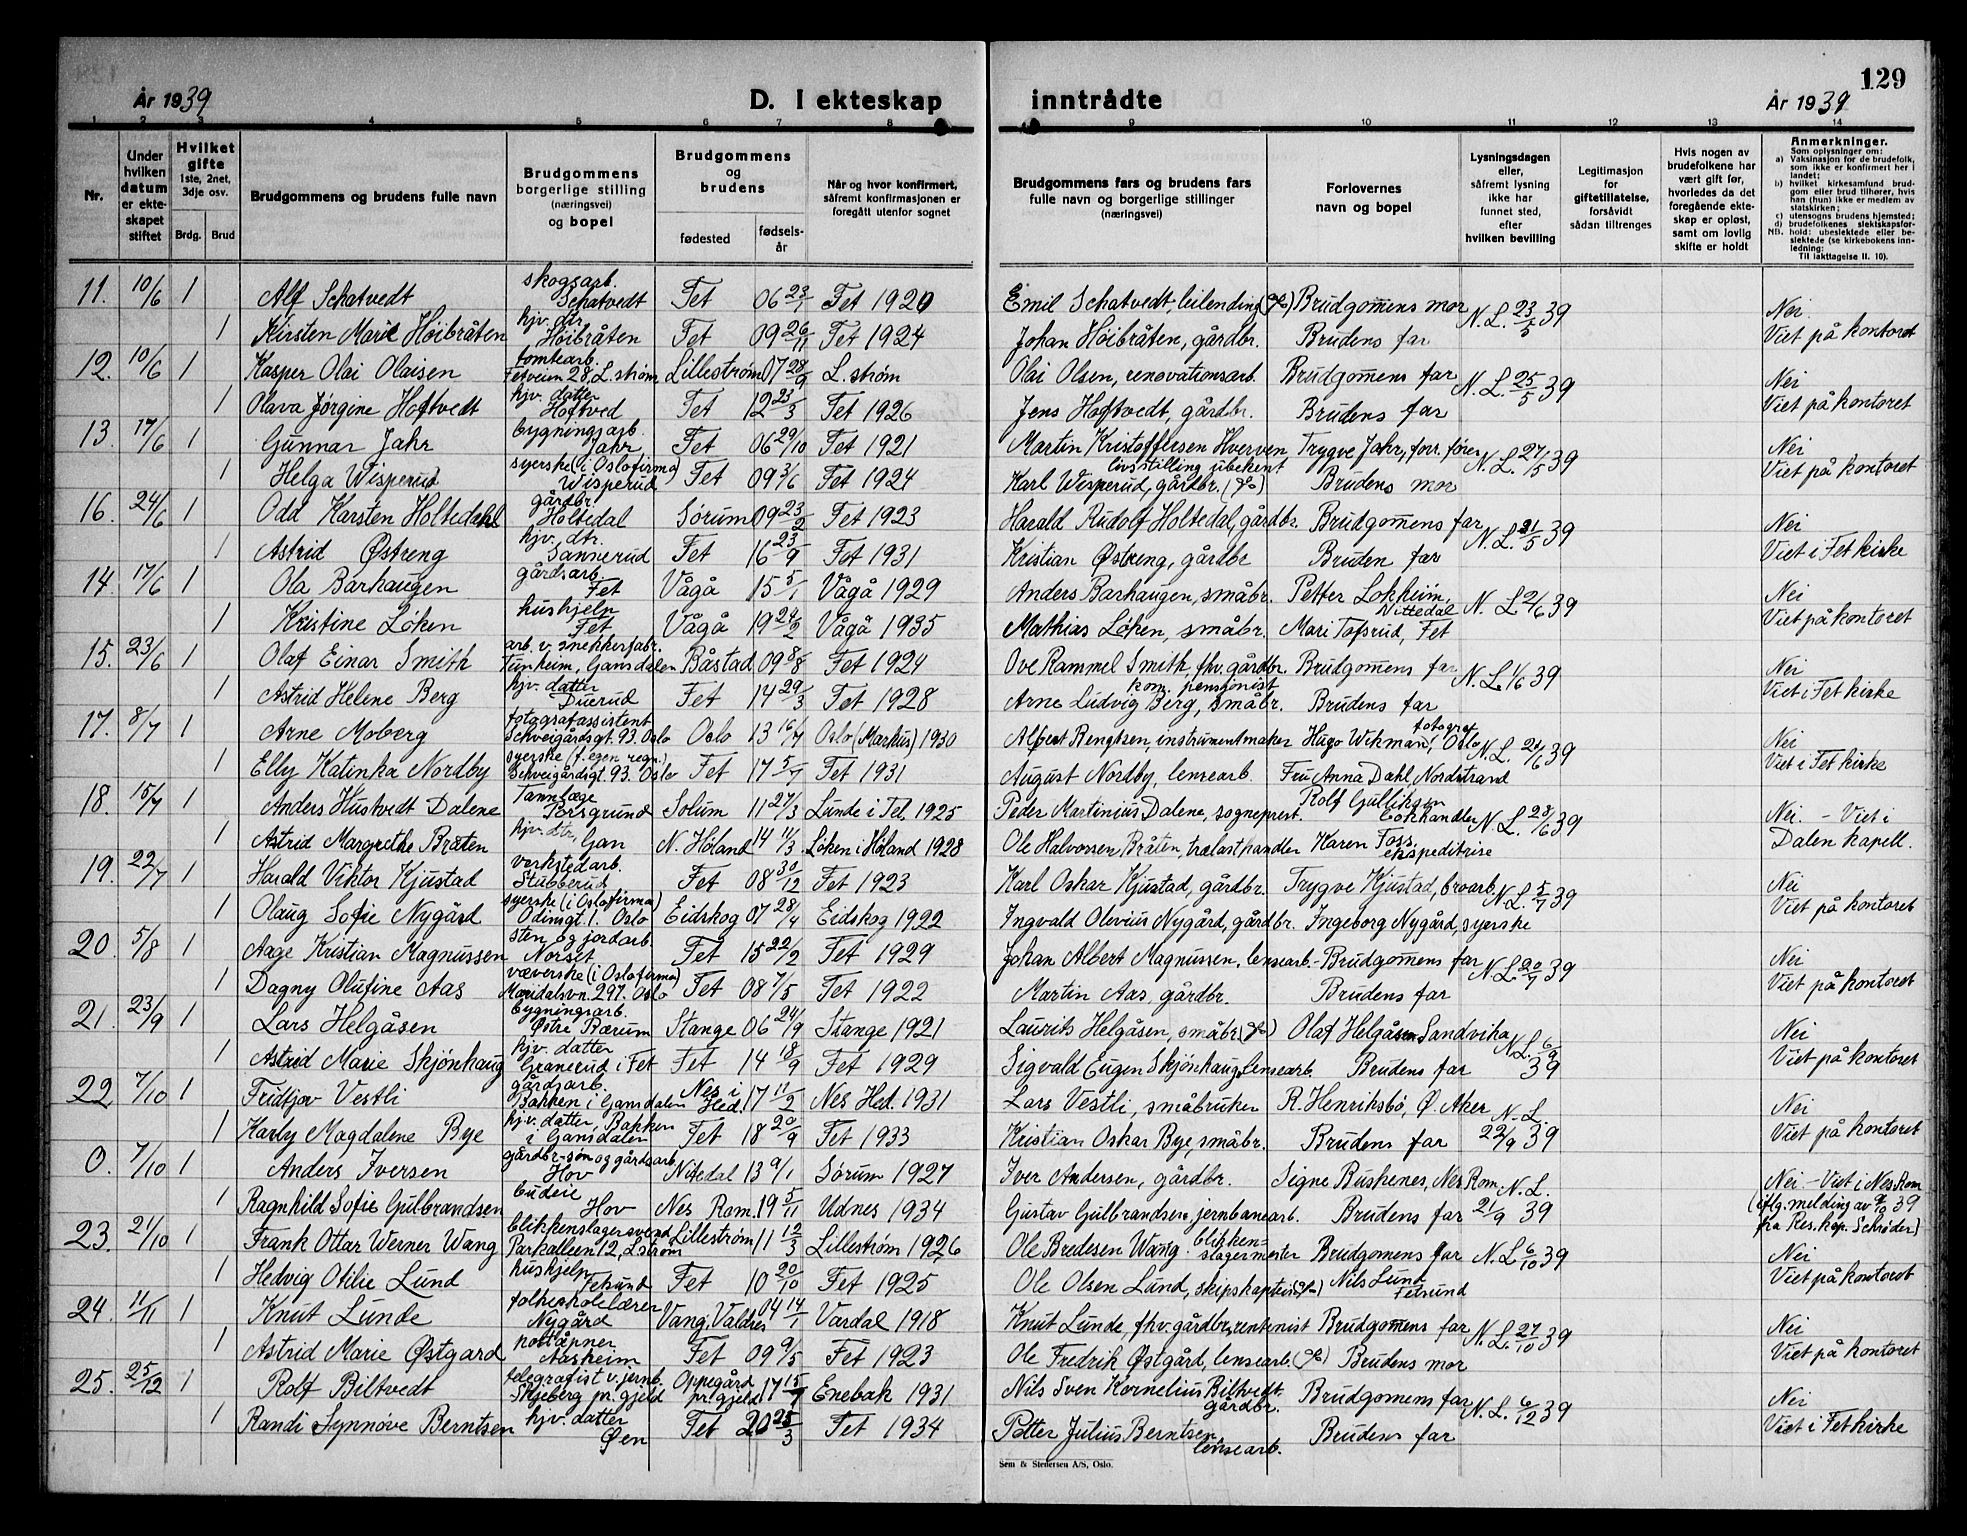 129
År 1939
D. I ekteskap inntrådte
År 1939
1 2 3 4 5 6 7 8 9 10 11 12 13 14
Nr.
Under hvilken datum er ekte-skapet stiftet
Hvilket gifte 1ste, 2net, 3dje osv.
Brdg. Brud
Brudgommens og brudens fulle navn
Brudgommens borgerlige stilling (næringsvei) og bopel
Brudgommens og brudens
fødested
fødsels-år
Når og hvor konfirmert, såfremt konfirmasjonen er foregått utenfor sognet
Brudgommens fars og brudens fars fulle navn og borgerlige stillinger (næringsvei)
Forlovernes navn og bopel
Lysningsdagen eller, såfremt lysning ikke har funnet sted, efter hvilken bevilling
Legitimasjon for giftetillatelse, forsåvidt sådan tiltrenges
Hvis nogen av brudefolkene har vært gift før, hvorledes da det foregående ekte-skap er opløst, samt om lovlig skifte er holdt
Anmerkninger.
Som oplysninger om:
a) Vaksinasjon for de brudefolk, som ikke er konfirmert her i landet;
b) hvilket kirkesamfund brud-gom eller brud tilhører, hvis han (hun) ikke er medlem av statskirken;
c) utensogns brudens hjemsted;
d) brudefolkenes slektskapsfor-hold: ubeslektede eller be-slektede (se kirkebokens inn-ledning:
NB.
Til iakttagelse II. 10).
11. 10/6 1 Alf Schatvedt skogsarb. Schatvedt Fet 06 23/7 Fet 1920 Emil Schatvedt, leilending Brudgomens mor N.L. 23/5 39 Nei
1 Kirsten Marie Høibråten hjv. dtr. Høibråten Fet 09 26/11 Fet 1924 Johan Høibråten, gårdbr. Brudens far Viet på kontoret
12. 10/6 1 Kasper Olai Olaisen tomtearb. Fetveien 28, L.strøm Lillestrøm 07 28/9 L. strøm Olai Olsen, renovationsarb. Brudgomens far N.L. 25/5 39 Nei
1 Olava Jørgine Hoftvedt hjv. datter Hoftved Fet 12 23/3 Fet 1926 Jens Hoftvedt, gårdbr. Brudens far Viet på kontoret
13. 17/6 1 Gunnar Jahr bygningsarb. Jahr Fet 06 29/10 Fet 1921 Martin Kristoffersen Hverven livsstilling ubekent Trygve Jahr, forr.fører N.L. 27/5 39 Nei
1 Helga Wisperud syerske (i Oslofirma) Wisperud Fet 09 3/6 Fet 1924 Karl Wisperud, gårdbr. Brudens mor Viet på kontoret
16. 24/6 1 Odd Karsten Holtedahl gårdbr. Holtedal Sørum 09 23/2 Fet 1923 Harald Rudolf Holtedal, gårdbr. Brudgomens far N.L. 31/5 39 Nei
1 Astrid Østreng hjv. dtr. Sannerud Fet 16 23/9 Fet 1931 Kristian Østreng, gårdbr Bruden far Viet i Fet kirke
14. 17/6 1 Ola Barhaugen gårdsarb. Fet Vågå 15 5/1 Vågå 1929 Anders Barhaugen, småbr. Petter Lokheim, Nittedal N.L. 2/6 39 Nei
1 Kristine Løken hushjelp Fet Vågå 19 24/2 Vågå 1935 Mathias Løken, småbr. Mari Tofsrud, Fet Viet på kontoret
15. 23/6 1 Olaf Einar Smith arb. v. snekkerfabr. Tunheim, Gansdalen Båstad 09 8/8 Fet 1924 Ove Rammel Smith, fhv. gårdbr. kom. pensjonist Brudgomens far N.L. 1/6 39 Nei
1 Astrid Helene Berg hjv. datter Duerud Fet 14 29/3 Fet 1928 Arne Ludvig Berg, småbr. Brudens far Viet i Fet kirke
17. 8/7 1 Arne Moberg fotografassistent Schweigårdsgt. 93. Oslo Oslo 13 16/7 Oslo (Markus) 1930 Albert Bengtsen, instrumentmaker Hugo Wikman, fotograf Oslo N.L. 21/6 39 Nei
1 Elly Katinka Nordby syerske (f. egen regn.) Schweigårdsgt. 93. Oslo Fet 17 5/7 Fet 1931 August Nordby, lensearb. Fru Anna Dahl, Nordstrand Viet i Fet kirke
18. 15/7 1 Anders Hustvedt Dalene Tannlæge Porsgrund Solum 11 27/3 Lunde i Tel. 1925 Peder Martinius Dalene, sogneprest. Rolf Gulliksen Bokhandler N.L. 28/6 39 Nei. - Viet i
1 Astrid Margrethe Bråten hjv. dtr, Gan N. Høland 14 11/3 Løken i Høland 1928 Ole Halvorsen Bråten, trelasthandler Karen Foss ekspeditrise Dalen kapell.
19. 22/7 1 Harald Viktor Kjustad verkstedarb. Stubberud Fet 08 30/12 Fet 1923 Karl Oskar Kjustad, gårdbr. Trygve Kjustad, broarb. N.L. 5/7 39 Nei
1 Olaug Sofie Nygård syerske (i Oslofirma) Odinsgt. 1. Oslo Eidskog 07 28/4 Eidskog 1922 Ingvald Olevius Nygård, gårdbr. Ingeborg Nygård, syerske Viet på kontoret
20. 5/8 1 Aage Kristian Magnussen sten og jordarb. Norset Fet 15 22/2 Fet 1929 Johan Albert Magnussen, lensearb. - Brudgomens far N.L. 20/7 39 Nei
1 Dagny Olufine Aas væverske (i Oslofirma) Maridalsvn. 297. Oslo Fet 08 7/5 Fet 1922 Martin Aas, gårdbr. Brudens far Viet på kontoret
21. 23/9 1 Lars Helgåsen bygningsarb. Østre Bærum Stange 06 24/9 Stange 1921 Laurits Helgåsen, småbr. Olaf Helgåsen Sandvika N.L. 6/9 39 Nei
1 Astrid Marie Skjønhaug hjv. datter Granerud i Fet Fet 14 18/9 Fet 1929 Sigvald Eugen Skjønhaug, lensearb. Brudens far Viet på kontoret
22 7/10 1 Fridtjov Vestli gårdsarb. Bakken i Gansdalen Nes i Hed. 17 11/2 Nes Hed. 1931 Lars Vestli, småbruker R. Henriksbø, Ø. Aker N.L. 22/9 39 Nei
1 Karly Magdalene Bye hjv. datter, Bakken i Gansdalen Fet 18 20/9 Fet 1933 Kristian Oskar Bye, småbr. Brudens far Viet på kontoret
0. 7/10 1 Anders Iversen gårdbr-søn og gårdsarb Hov Nitedal 13 9/1 Sørum 1927 Iver Andersen, gårdbr. Signe Buskenes, Nes Rom. N.L. 21/9 39 Nei - Viet i Nes Rom
1 Ragnhild Sofie Gulbrandsen budeie Hov Nes Rom. 19 5/11 Udnes 1934 Gustav Gulbrandsen, jernbanearb. Brudens far (iflg. melding av 9/10 39 fra Res. kap. Schrøder)
23. 21/10 1 Frank Ottar Werner Wang blikkenslagersvend Parkalleen 12, L.strøm Lillestrøm 11 12/3 Lillestrøm 1926 Ole Bredesen Wang. blikken-slagermester Brudgomens far N.L. 6/10 39 Nei
1 Hedvig Otilie Lund hushjelp Fetsund Fet 10 20/10 Fet 1925 Ole Olsen Lund, skipskaptein Nils Lund Fetsund Viet på kontoret
24. 11/11 1 Knut Lunde folkeskolelærer Nygård Vang, Valdres 04 14/1 Vardal 1918 Knut Lunde, fhv. gårdbr, rentenist Brudgomens far N.L. 27/10 39 Nei
1 Astrid Marie Østgard poståpner Aasheim Fet 09 9/5 Fet 1923 Ole Fredrik Østgård, lensearb. Brudens mor Viet på kontoret
25. 25/12 1 Rolf Biltvedt telegrafist v. jernb. Skjeberg pr.gjeld Oppegård pr.gjeld 17 15/7 Enebak 1931 Nils Sven Kornelius Biltvedt. gårdbr. Brudgomens far N.L. 6/12 39 Nei
1 Randi Synnøve Berntsen hjv. datter Øen Fet 20 25/3 Fet 1934 Petter Julius Berntsen, lensearb. Brudens far Viet i Fet kirke
Sem & Stenersen A/S, Oslo.